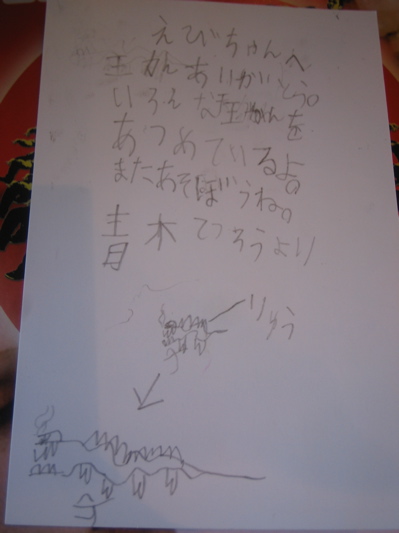 えびちゃんへ
王かんありがとう。
いろんな王かんを
あつめているよ。
またあそぼうね。
青木てつろうより
りゅう